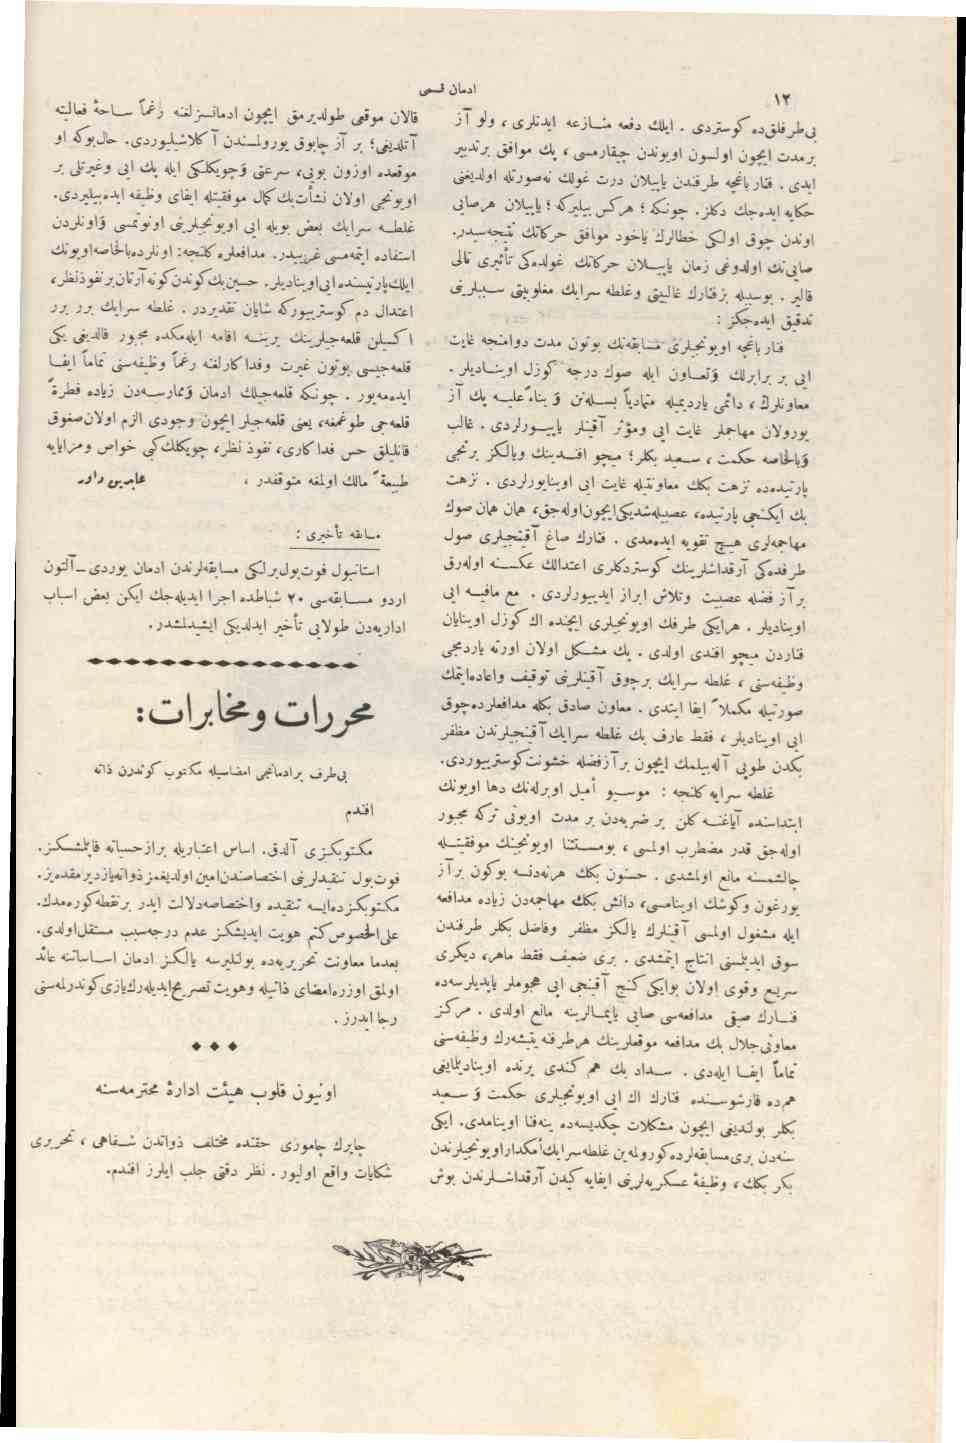 ادمان قسمی
١٢
بی‌طرفلق‌ده کوستردی . ایلك دفعه منازعه ایدنلری ، ولو آز
برمدت ایچون اولسون اویوندن چیقارمسی ، پك موافق برتدبیر
ایدی . فنار باغچه طرفندن یاپیلان درت غولك نه‌صورتله اولدیغنی
حکایه ایده‌جك دکلز . چونکه ؛ هرکس بیلیرکه ؛ یاپیلان هرصایی
اوندن چوق اولکی خطالرك یاخود موافق حرکاتك نتیجه‌سیدر.
صایی‌نك اولدوغی زمان یاپیلان حرکاتك غولده‌کی تأثیری تالی
قالیر . بوسبیله بزفنارك غالبیتی وغلطه سرایك مغلوبیتی سببلرینی
تدقیق ایده‌جکز :
فنار باغچه اویونجیلری مسابقه‌نك بوتون مدت دوامنجه غایت
ایی بر برابرلك وتعاون ایله صوك درجه کوزل اوینادیلر .
معاونلرك ، دائمی یاردیمیله متمادیاً بسله‌نن و بناءً علیه پك آز
یورولان مهاجملر غایت ایی ومؤثر آقینلر یاپیورلردی . غالب
وبالخاصه حکمت ، سعید بکلر ؛ میچو افندینك ویالکز برنجی
پارتیده‌ده نزهت بکك معاونتیله غایت ایی اوینایورلردی . نزهت
بك ایکنجی پارتیده، عصبیله‌شدیکی‌ایچون‌اوله‌جق، همان همان صوك
مهاجمه‌لری هیچ تقویه ایده‌مدی . فنارك صاغ آقینجیلری صول
طرفده‌کی آرقداشلرینك کوستردکلری اعتدالك عکسنه اوله‌رق
برآز فضله عصبیت وتلاش ابراز ایدییورلردی . مع مافیه ایی
اوینادیلر . هرایکی طرفك اویونجیلری ایچنده اك کوزل اوینایان
فناردن میچو افندی اولدی . پك مشکل اولان اورته یاردمجی
وظیفه‌سنی ، غلطه سرایك برچوق آقینلرینی توقیف واعاده‌ایتمك
صورتیله مکملاً ایفا ایتدی . معاون صادق بکله مدافعلرده‌چوق
ایی اوینادیلر ، فقط عارف بك غلطه سرایك آقینجیلرندن مظفر
بکدن طوپی آله‌بیلمك ایچون برآزفضله خشونت‌کوستریيوردی.
غلطه سرایه کلنجه : موسیو أمیل اوبرله‌نك دها اویونك
ابتداسنده آیاغنه کلن بر ضربه‌دن بر مدت اویونی ترکه مجبور
اوله‌جق قدر مضطرب اولمسی ، بومستثنا اویونجینك موفقیتله
چالیشمسنه مانع اولمشدی . حسنون بکك هرنه‌دنسه بوکون برآز
یورغون وکوشك اوینامسی، دانش بکك مهاجمه‌دن زیاده مدافعه
ایله مشغول اولمسی آقینلرك یالکز مظفر وفاضل بکلر طرفندن
سوق ایدیلمسنی انتاج ایتمشدی . بری ضعیف فقط ماهر، دیکری
سریع وقوی اولان بوایکی کنج آقینجی ایی هجوملر یاپدیلرسه‌ده
فنارك صیقی مدافعه‌سی صایی یاپمالرینه مانع اولدی . مرکز
معاونی‌جلال بك مدافعه موقعلرینك هرطرفنه یتیشه‌رك وظیفه‌سنی
تماماً ایفا ایله‌دی . سداد بك هم کندی یرنده اوینادیغی
هم‌ده قارشوسنده فنارك اك ایی اویونجیلری حکمت و سعید
بکلر بولندیغی ایچون مشکلات چکدیسه‌ده ینه‌فنا اوینامدی. ایکی
سنه‌دن بری‌مسابقه‌لرده‌کورولمه‌ین غلطه‌سرایك‌أمکداراویونجیلرندن
بکر بکك ، وظیفهٔ عسکریه‌لرینی ایفایه کیدن آرقداشلرندن بوش
قالان موقعی طولدیرمق ایچون ادمانسزلغنه رغماً ساحهٔ فعالیته
آتلدیغی؛ بر آز چابوق یورولسندن آکلاشیلیوردی. حال‌بوکه او
موقعده اوزون بویی، سرعتی وچویکلکی ایله پك ایی وغیرتلی بر
اویونجی اولان نشأت‌بك کمال موفقیتله ایفای وظیفه ایده‌بیلیردی.
غلطه سرایك بعض بویله ایی اویونجیلرینی اونوتمسی واونلردن
استفاده ایتمه‌مسی غریبدر. مدافعلره کلنجه: اونلرده‌بالخاصه‌اویونك
ایلك‌پارتیسنده‌ایی‌اوینادیلر. حسین‌بك‌کوندن‌کونه‌آرتان‌برنفوذنظر،
اعتدال دم کوستریيورکه شایان تقدیردر . غلطه سرایك برر برر
اکسیلن قلعه‌جیلرینك یرینه اقامه ایله‌مکده مجبور قالدیغی یکی
قلعه‌جیسی بوتون غیرت وفداکارلغنه رغماً وظیفه‌سنی تماماً ایفا
ایده‌مه‌یور . چونکه قلعه‌جیلك ادمان وممارسه‌دن زیاده فطرةً
قلعه‌جی طوغمغه، یعنی قلعه‌جیلر ایچون وجودی الزم اولان‌صغوق
قانلیلق حس فداکاری، نفوذ نظر، چویکلك‌کبی خواص ومزایایه
طبیعةً مالك اولمغه متوقفدر .
عابدین داور
مسابقه تأخیری :
استانبول فوت‌بول‌برلکی مسابقه‌لرندن ادمان یوردی‌ـ‌آلتون
اردو مسابقه‌سی ٢٠ شباطده اجرا ایدیله‌جك ایکن بعض اسباب
اداریه‌دن طولایی تأخیر ایدلدیکی ایشیدلمشدر.
محررات ومخابرات :
بی‌طرف برادمانجی امضاسیله مکتوب کوندرن ذاته
افندم
مکتوبکزی آلدق. اساس اعتباریله برازحسیاته قاپلمشسکز.
فوت‌بول تنقیدلرینی اختصاصندن‌امین‌اولدیغمز ذواته‌یازدیرمقده‌یز.
مکتوبکزده‌ایسه تنقیده واختصاصه‌دلالت ایدر برنقطه‌کوره‌مدك.
علی‌الخصوص‌کتم هویت ایدیشکز عدم درجه‌سبب مستقل‌اولدی.
بعدما معاونت تحریریه‌ده بولنلیرسه یالکز ادمان اساساتنه عائد
اولمق اوزره‌امضای ذاتیله وهویت تصریح‌ایدیله‌رك‌یازی‌کوندرلمه‌سنی
رجا ایدرز .
اونیون قلوب هیئت ادارهٔ محترمه‌سنه
چایرك چاموری حقنده مختلف ذواتدن شفاهی ، تحریری
شکایات واقع اولیور . نظر دقتی جلب ایلرز افندم.